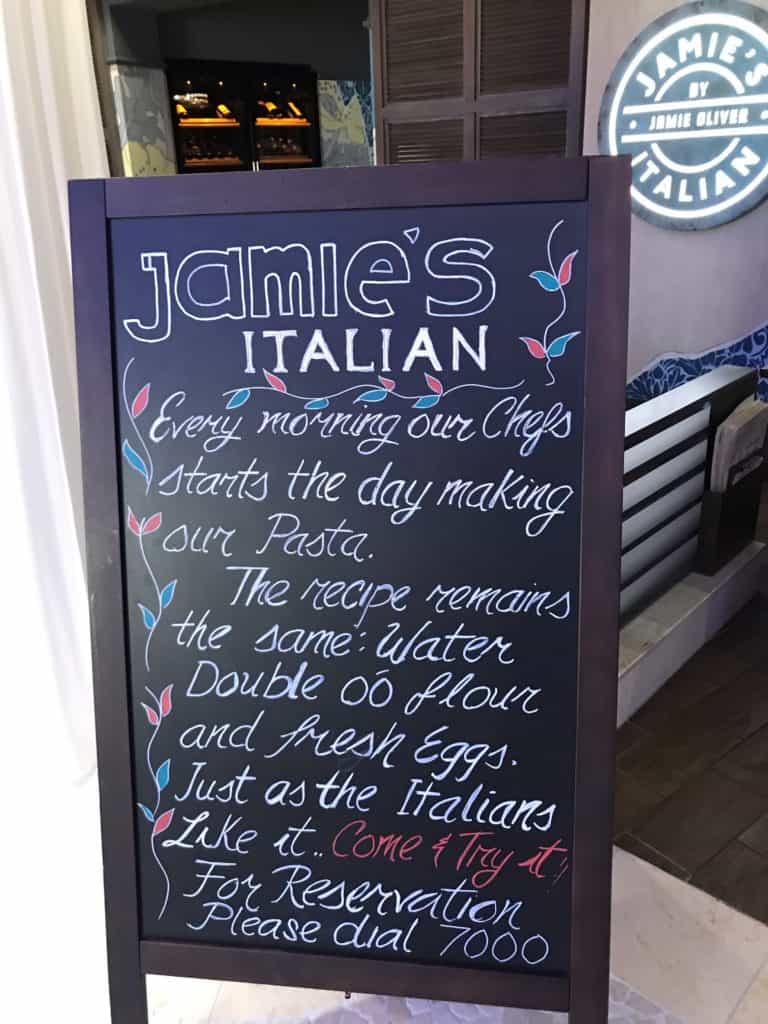 JAMIE'S
BY
JAMIE OLIVER
ITALIAN
Jamie's
ITALIAN
Every morning our Chefs
starts the day making
our Pasta.
The recipe remains
the same: Water
Double 00 flour
and fresh Eggs.
Just as the Italians
Like it.. Come & Try it!
For Reservation
Please dial 7000